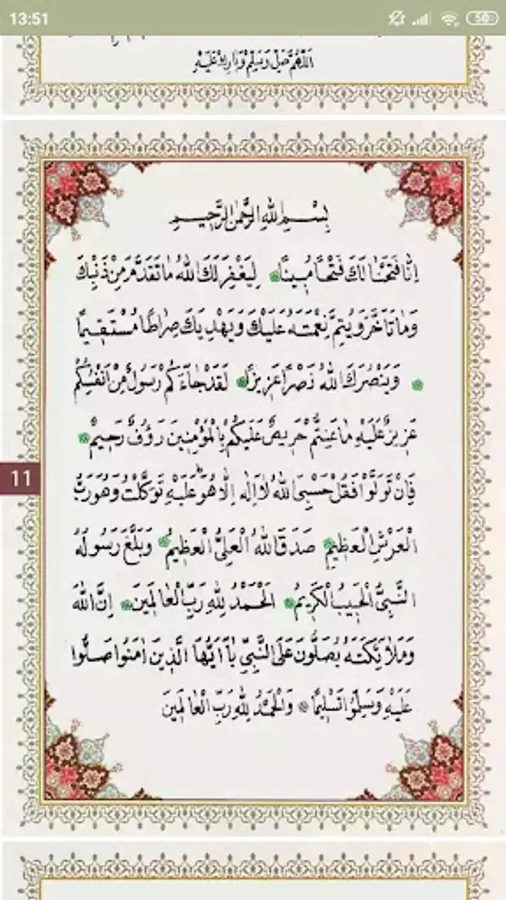 13:51
50
اَللّٰهُمَّ صَلِّ وَسَلِّمْ وَبَارِكْ عَلَيْهِ
بِسْــمِ اللهِ الرَّحْمٰنِ الرَّحِيْــمِ
اِنَّا فَتَحْنَا لَكَ فَتْحًا مُبِيْنًا ۞ لِيَغْفِرَ لَكَ اللهُ مَا تَقَدَّمَ مِنْ ذَنْبِكَ
وَمَا تَاَخَّرَ وَيُتِمَّ نِعْمَتَهُ عَلَيْكَ وَيَهْدِيَكَ صِرَاطًا مُسْتَقِيْمًا
۞ وَيَنْصُرَكَ اللهُ نَصْرًا عَزِيْزًا ۞ لَقَدْ جَاءَكُمْ رَسُوْلٌ مِنْ اَنْفُسِكُمْ
عَزِيْزٌ عَلَيْهِ مَاعَنِتُّمْ حَرِيْصٌ عَلَيْكُمْ بِالْمُؤْمِنِيْنَ رَؤُفٌ رَحِيْمٌ ۞
11
فَاِنْ تَوَلَّوْا فَقُلْ حَسْبِيَ اللهُ لَا اِلٰهَ اِلَّا هُوَ عَلَيْهِ تَوَكَّلْتُ وَهُوَ رَبُّ
الْعَرْشِ الْعَظِيْمِ ۞ صَدَقَ اللهُ الْعَلِيُّ الْعَظِيْمُ ۞ وَبَلَّغَ رَسُوْلُهُ
النَّبِيُّ الْحَبِيْبُ الْكَرِيْمُ ۞ اَلْحَمْدُ لِلهِ رَبِّ الْعَالَمِيْنَ ۞ اِنَّ اللهَ
وَمَلَائِكَتَهُ يُصَلُّوْنَ عَلَى النَّبِيِّ يَا اَيُّهَا الَّذِيْنَ اٰمَنُوْا صَلُّوْا
عَلَيْهِ وَسَلِّمُوْا تَسْلِيْمًا ۞ وَالْحَمْدُ لِلهِ رَبِّ الْعَالَمِيْنَ